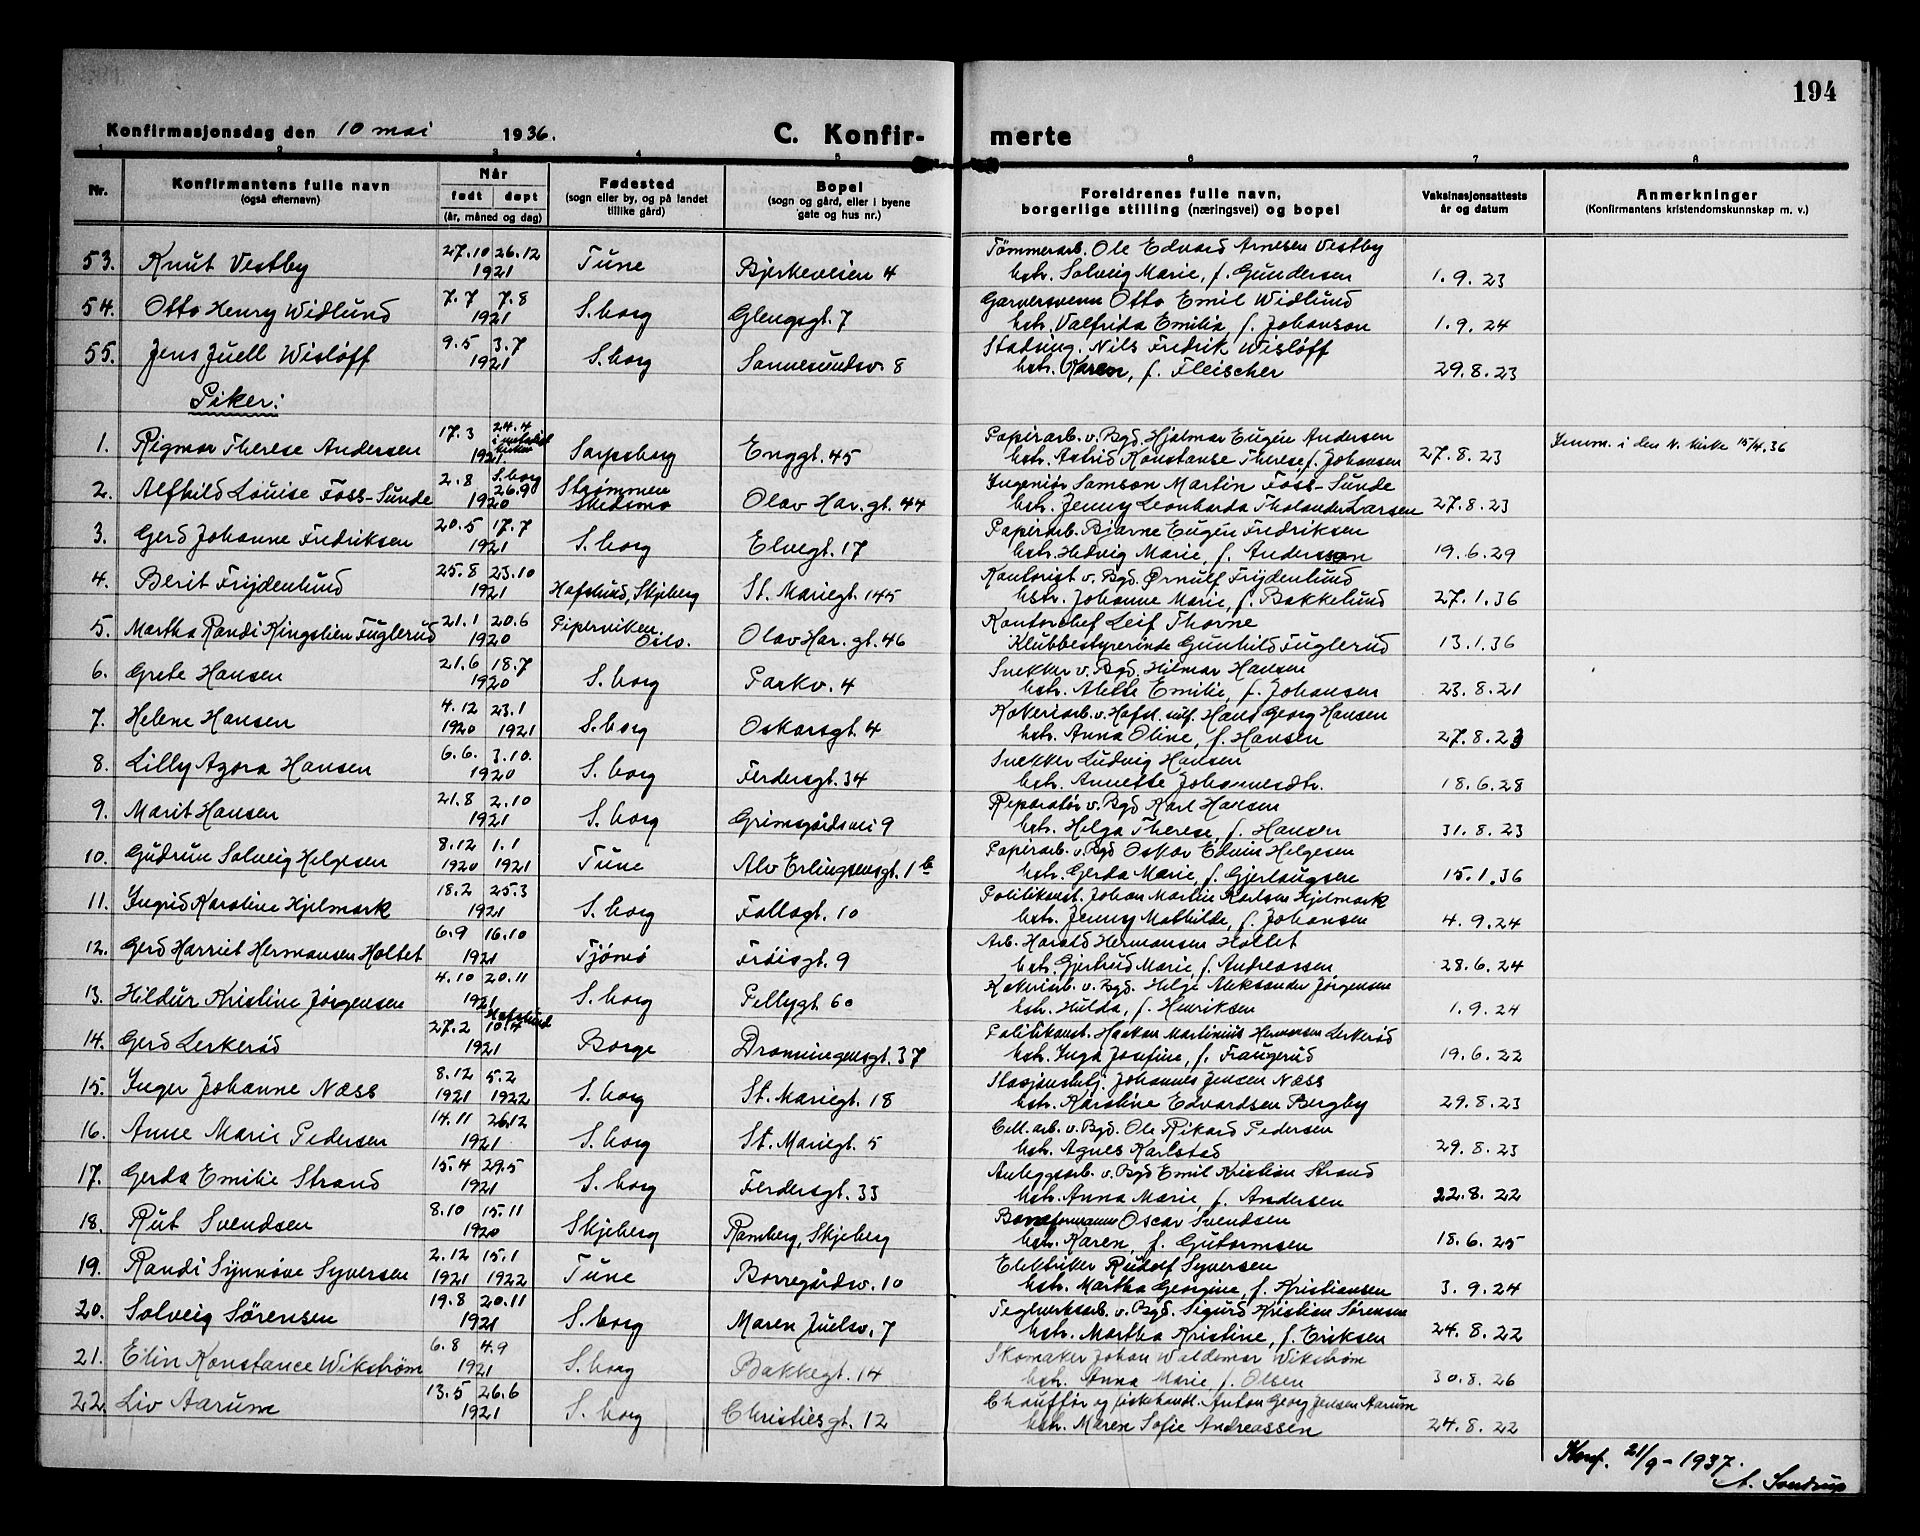 194
Konfirmasjonsdag den 10 mai 1936. C. Konfir- merte
1 2 3 4 5 6 7 8
Nr. Konfirmantens fulle navn (også efternavn) Når født døpt (år, måned og dag) Fødested (sogn eller by, og på landet tillike gård) Bopel (sogn og gård, eller i byene gate og hus nr.) Foreldrenes fulle navn, borgerlige stilling (næringsvei) og bopel Vaksinasjonsattests år og datum Anmerkninger (Konfirmantens kristendomskunnskap m. v.)
53. Knut Vestby 27.10 26.12 1921 Tune Bjerkeveien 4 Tømmerarb. Ole Edvard Arnesen Vestby
hstr. Solveig Marie, f. Gundersen 1.9.23
54. Otto Henry Widlund 7.7 7.8 1921 S.borg Glengsgt. 7 Garversvenn Otto Emil Widlund
hstr. Valfrida Emilia, f. Johanson 1.9.24
55. Jens Juell Wisløff 9.5 3.7 1921 S.borg Sannesundsv. 8 Stadsing. Nils Fredrik Wisløff
hstr. Karen, f. Fleischer 29.8.23
Piker:
1. Rigmor Therese Andersen 17.3 24.4 i metodist kirken 1921 Sarpsborg Enggt. 45 Papirarb. v. Bgd. Hjalmar Eugén Andersen
hstr. Astrid Konstanse Therese, f. Johansen 27.8.23 Innm. i den N. Kirke 15/4.36
2. Alfhild Louise Foss-Sunde 2.8 S.borg 26.9 1920 Strømmen Skedsmo Olav Har. gt. 44 Ingeniør Samson Martin Foss-Sunde
hstr. Jenny Leonharda Tholander Larsen 27.8.23
3. Gerd Johanne Fredriksen 20.5 17.7 1921 S.borg Elvegt. 17 Papirarb. Bjarne Eugén Fredriksen
hstr. Hedvig Marie, f. Andersson 19.6.29
4. Berit Frydenlund 25.8 23.10 1921 Hafslund, Skjeberg St. Mariegt. 145 Kontorist v. Bgd. Ørnulf Frydenlund
hstr. Johanne Marie, f. Bakkelund 27.1.36
5. Martha Randi Ringslien Fuglerud 21.1 20.6 1920 Piperviken Oslo. Olav Har. gt. 46 Kontorchef Leif Thorne
Klubbestyrerinde Gunhild Fuglerud 13.1.36
6. Grete Hansen 21.6 18.7 1920 S.borg Parkv. 4 Snekker v. Bgd. Hilmar Hansen
hstr. Alette Emilie, f. Johansen 23.8.21
7. Helene Hansen 4.12 1920 23.1 1921 S.borg Oskarsgt. 4 Kokeriarb. v. Hafsl. sulf. Hans Georg Hansen
hstr. Anna Oline, f. Hansen 27.8.23
8. Lilly Agora Hansen 6.6. 3.10. 1920 S.borg Ferdersgt. 34 Snekker Ludvig Hansen
hstr. Annette Johannesdtr. 18.6.28
9. Marit Hansen 21.8 2.10 1921 S.borg Grimsgårdsvei 9 Reparatør v. Bgd Karl Hansen
hstr. Helga Therese, f. Hansen 31.8.23
10. Gudrun Solveig Helgesen 8.12 1920 1.1 1921 Tune Alv Erlingsensgt. 1 b Papirarb. v. Bgd Oskar Edvin Helgesen
hstr. Gerda Marie, f. Gjerlaugsen 15.1.36
11. Ingrid Karoline Hjelmark 18.2 25.3 1921 S.borg Follogt. 10 Politikonst. Johan Martin Karlsen Hjelmark
hstr. Jenny Mathilde, f. Johansen 4.9.24
12. Gerd Harriet Hermansen Holtet 6.9 16.10 1921 Tjømø Frøisgt. 9 Arb. Harald Hermansen Holtet
hstr. Gjertrud Marie, f. Andreassen 28.6.24
13. Hildur Kristine Jørgensen 4.10 20.11 1921 S.borg Pellygt. 60 Kokeriarb. v. Bgd. Helge Aleksander Jørgensen
hstr. Hulda, f. Henriksen 1.9.24
14. Gerd Lerkerød 27.2 Hafslund 10.4 1921 Borge Dronningensgt. 37 Politikonst. Haakon Martinius Hermansen Lerkerød
hstr. Inga Josefine, f. Frangerud 19.6.22
15. Inger Johanne Næss 8.12 1921 5.2 1922 S.borg St. Mariegt. 18 Stasjonsbetj. Johannes Jensen Næss
hstr. Karoline Edvardsen Bergby 29.8.23
16. Anne Marie Pedersen 14.11 26.12 1921 S.borg St. Mariegt. 5 Cell. arb. v. Bgd. Ole Rikard Pedersen
hstr. Agnes Karlstad 29.8.23
17. Gerda Emilie Strand 15.4 29.5 1921 S.borg Ferdersgt. 33 Anleggsarb. v. Bgd Emil Kristian Strand
hstr. Anna Marie, f. Andersen 22.8.22
18. Rut Svendsen 8.10 15.11 1920 Skjeberg Ramberg, Skjeberg Baneformann Oscar Svendsen
hstr. Karen, f. Gutormsen 18.6.25
19. Randi Synnøve Syversen 2.12 1921 15.1 1922 Tune Borregårdsv. 10 Elektriker Rudolf Syversen
hstr. Martha Georgine, f. Kristiansen 3.9.24
20. Solveig Sørensen 19.8 20.11 1921 S.borg Maren Juelsv. 7 Teglverksarb. v. Bgd. Sigurd Kristian Sørensen
hstr. Martha Kristine, f. Eriksen 24.8.22
21. Elin Konstance Wikstrøm 6.8 4.9 1921 S.borg Bakkegt. 14 Skomaker Johan Waldemar Wikstrøm
hstr. Anna Marie f. Olsen 30.8.26
22. Liv Aarum 13.5 26.6 1921 S.borg Christiesgt. 12 Chauffør og fiskehandl. Anton Georg Jensen Aarum
hstr. Maren Sofie Andreassen 24.8.22
Konf. 21/9 - 1937.
A. Sandrup